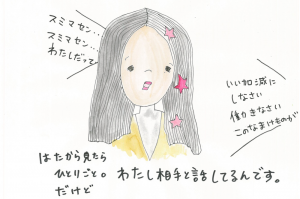 スミマセン…
スミマセン…
わたしだって
いい加減に
しなさい
働きなさい
このなまけものが
はたから見たら
ひとりごと。
だけど
わたし相手と話してるんです。